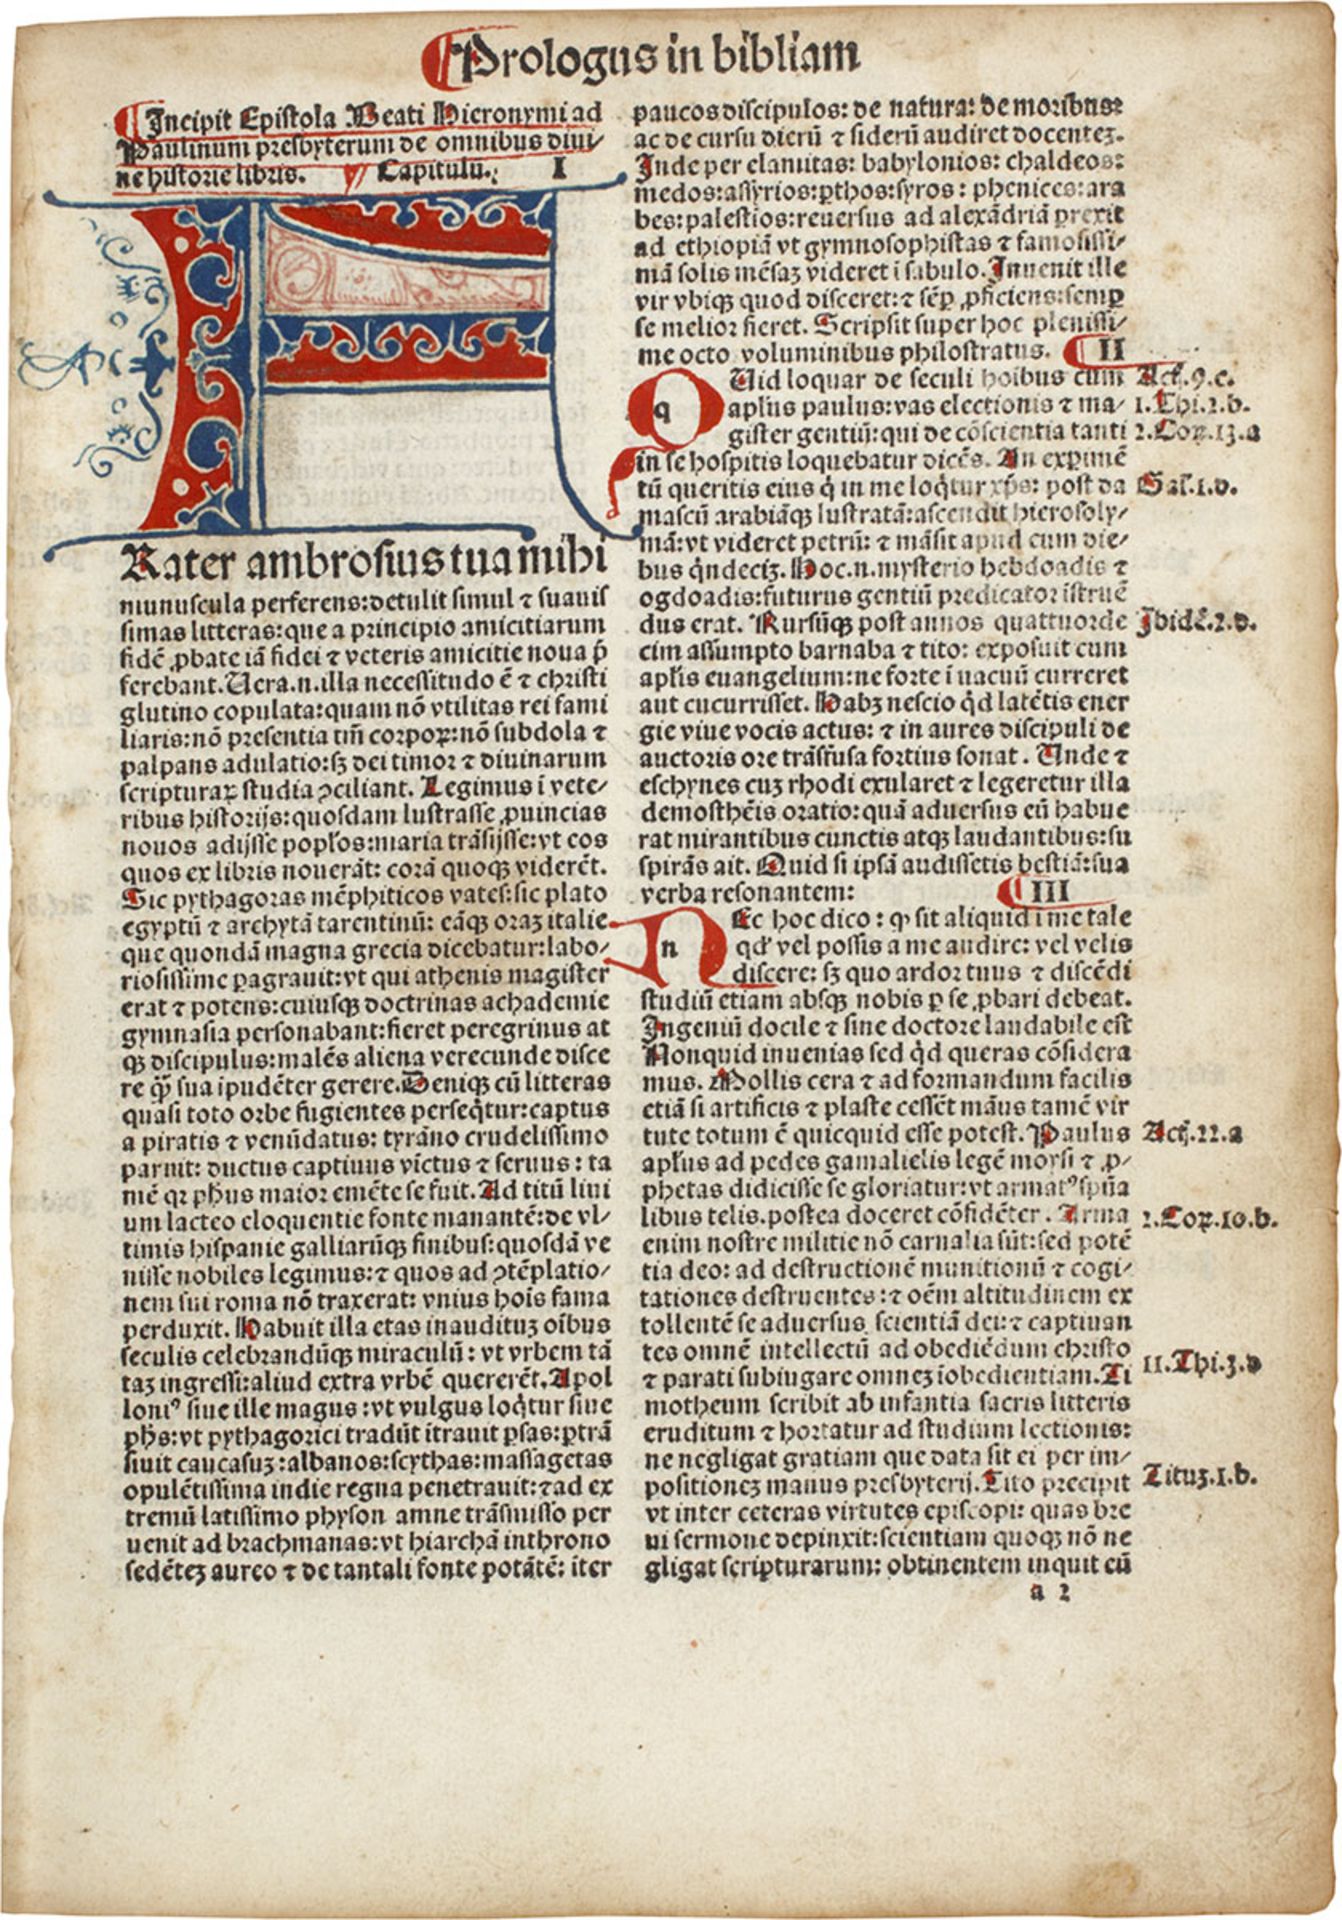 Prologus in bibliam
Incipit Epistola Beati Hieronymi ad
Paulinum presbyterum de omnibus diui⸗
ne historie libris. Capitulū. I
F
Rater ambrosius tua mihi
munuscula perferens:detulit simul ⁊ suauis
simas litteras:que a principio amicitiarum
fidē ꝓbate iā fidei ⁊ veteris amicitie noua p̄
ferebant.Uera.n.illa necessitudo ē ⁊ christi
glutino copulata:quam nō vtilitas rei fami
liaris:nō presentia tm̄ corpoꝝ:nō subdola ⁊
palpans adulatio:sꝫ dei timor ⁊ diuinarum
scripturaꝝ studia ꝯciliant. Legimus ī vete⸗
ribus historijs:quosdam lustrasse ꝓuincias
nouos adijsse popl'os:maria trāsijsse:vt eos
quos ex libris nouerāt: corā quoqꝫ viderēt.
Sic pythagoras mēphiticos vates:sic plato
egyptū ⁊ archytā tarentinū: eāqꝫ oraꝫ italie
que quondā magna grecia dicebatur:labo⸗
riosissime ꝑagrauit:vt qui athenis magister
erat ⁊ potens:cuiusqꝫ doctrinas achademie
gymnasia personabant:fieret peregrinus at
qꝫ discipulus:malēs aliena verecunde disce
re qꝫ̄ sua ipudēter gerere.Deniqꝫ cū litteras
quasi toto orbe fugientes perseq̄tur:captus
a piratis ⁊ venūdatus: tyrāno crudelissimo
paruit: ductus captiuus victus ⁊ seruus: ta
mē qꝛ phus maior emēte se fuit.Ad titū liui
um lacteo eloquentie fonte manantē:de vl⸗
timis hispanie galliarūqꝫ finibus:quosdā ve
nisse nobiles legimus:⁊ quos ad ꝯtēplatio⸗
nem sui roma nō traxerat: vnius hois fama
perduxit. Habuit illa etas inaudituꝫ oībus
seculis celebrandūqꝫ miraculū: vt vrbem tā
taꝫ ingressi:aliud extra vrbē quererēt.Apol
loniꝰ siue ille magus:vt vulgus loq̄tur siue
phs:vt pythagorici tradūt itrauit ꝑsas:ꝑtrā
siuit caucasuꝫ:albanos:scythas:massagetas
opulētissima indie regna penetrauit:⁊ ad ex
tremū latissimo physon amne trāsmisso per
uenit ad brachmanas:vt hiarchā inthrono
sedēteꝫ aureo ⁊ de tantali fonte potātē: iter
paucos discipulos: de natura: de moribus:
ac de cursu dierū ⁊ siderū audiret docenteꝫ.
Inde per elamitas: babylonios: chaldeos:
medos:assyrios:ꝑthos:syros: phenices:ara
bes:palestios:reuersus ad alexādriā ꝑrexit
ad ethiopiā vt gymnosophistas ⁊ famosissi⸗
mā solis mēsaꝫ videret ī sabulo.Inuenit ille
vir vbiqꝫ quod disceret:⁊ sēꝑ ꝓficiens:semꝑ
se melior fieret. Scripsit super hoc plenissi⸗
me octo voluminibus philostratus. II
q Uid loquar de seculi hoībus cum
aplūs paulus:vas electionis ⁊ ma⸗
gister gentiū:qui de cōscientia tanti
in se hospitis loquebatur dicēs. An exꝑimē
tū queritis eius q̄ in me loq̄tur xp̄s: post da
mascū arabiāqꝫ lustratā:ascendit hierosoly⸗
mā:vt videret petrū: ⁊ māsit apud eum die⸗
bus q̄ndeciꝫ.Hoc.n.mysterio hebdoadis ⁊
ogdoadis:futurus gentiū predicator īstruē
dus erat. Rursūqꝫ post annos quattuorde
cim assumpto barnaba ⁊ tito: exposuit cum
apl'is euangelium:ne forte ī uacuū curreret
aut cucurrisset. Habꝫ nescio q̄d latētis ener
gie viue vocis actus: ⁊ in aures discipuli de
auctoris ore trāsfusa fortius sonat. Unde ⁊
eschynes cuꝫ rhodi exularet ⁊ legeretur illa
demosthēis oratio: quā aduersus eū habue
rat mirantibus cunctis atqꝫ laudantibus:su
spirās ait. Quid si ipsā audissetis bestiā:sua
verba resonantem: III
n Ec hoc dico: ꝙ sit aliquid ī me tale
qd' vel possis a me audire: vel velis
discere: sꝫ quo ardor tuus ⁊ discēdi
studiū etiam absqꝫ nobis ꝑ se ꝓbari debeat.
Ingeniū docile ⁊ sine doctore laudabile est
Nonquid inuenias sed q̄d queras cōsidera
mus. Mollis cera ⁊ ad formandum facilis
etiā si artificis ⁊ plaste cessēt māus tamē vir
tute totum ē quicquid esse potest. Paulus
apl'us ad pedes gamalielis legē moysi ⁊ ꝓ⸗
phetas didicisse se gloriatur:vt armatꝰ spūa
libus telis.postea doceret cōfidēter. Arma
enim nostre militie nō carnalia sūt:sed potē
tia deo: ad destructionē munitionū ⁊ cogi⸗
tationes destruentes:⁊ oēm altitudinem ex
tollentē se aduersus scientiā dei:⁊ captiuan
tes omnē intellectū ad obediēdum christo
⁊ parati subiugare omneꝫ īobedientiam.Ti
motheum scribit ab infantia sacris litteris
eruditum ⁊ hortatur ad studium lectionis:
ne negligat gratiam que data sit ei per im⸗
positioneꝫ manus presbyterij.Tito precipit
vt inter ceteras virtutes episcopi: quas bre
ui sermone depinxit:scientiam quoqꝫ nō ne
gligat scripturarum: obtinentem inquit eū
a 2
Act.9.c.
1.Thi.2.b.
2.Coꝝ.13.a
Gal.1.d.
Ibidē.2.d.
Act.22.a
2.Coꝝ.10.b.
11.Thi.3.d
Tituꝫ.1.b.